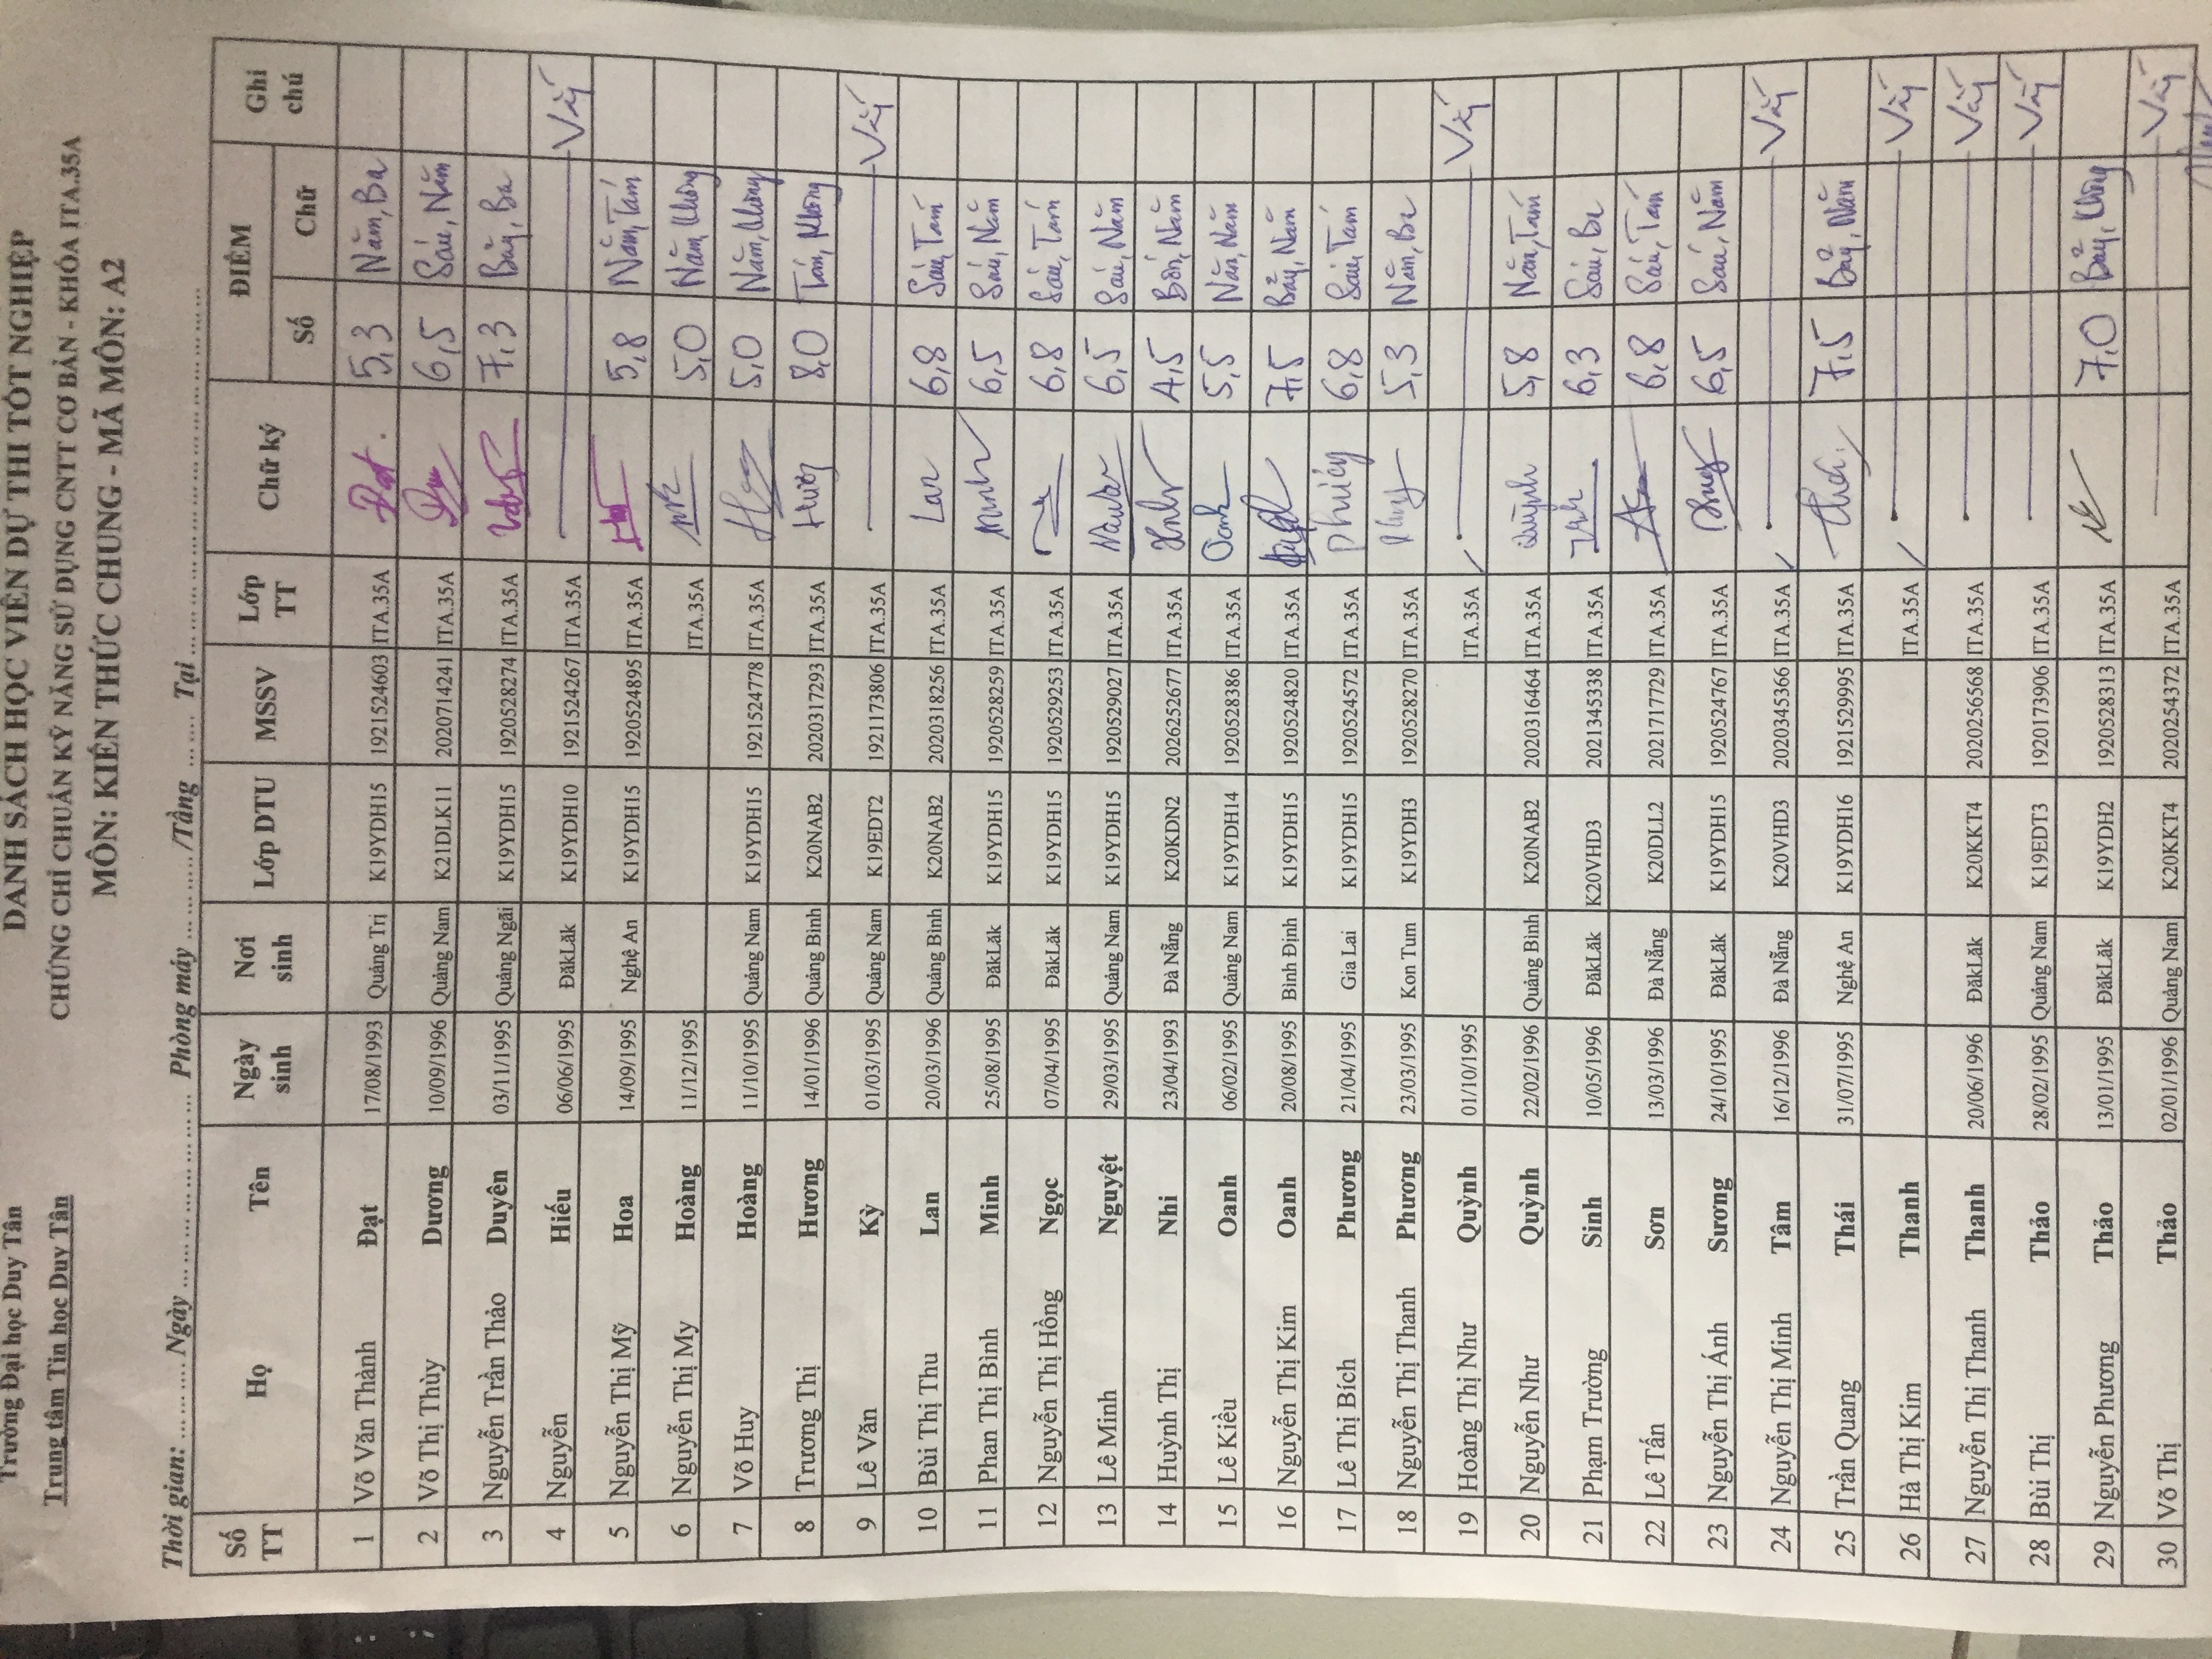 Trường Đại học Duy Tân
Trung tâm Tin học Duy Tân
DANH SÁCH HỌC VIÊN DỰ THI TỐT NGHIỆP
CHỨNG CHỈ CHUẨN KỸ NĂNG SỬ DỤNG CNTT CƠ BẢN - KHÓA ITA.35A
MÔN: KIẾN THỨC CHUNG - MÃ MÔN: A2
Thời gian: ......... Ngày ........................ Phòng máy ....... /Tầng ........... Tại ........................
Số TT Họ Tên Ngày sinh Nơi sinh Lớp DTU MSSV Lớp TT Chữ ký ĐIỂM Số Chữ Ghi chú
1 Võ Văn Thành Đạt 17/08/1993 Quảng Trị K19YDH15 1921524603 ITA.35A Đạt 5,3 Năm, Ba
2 Võ Thị Thùy Dương 10/09/1996 Quảng Nam K21DLK11 2020714241 ITA.35A 6,5 Sáu, Năm
3 Nguyễn Trần Thảo Duyên 03/11/1995 Quảng Ngãi K19YDH15 1920528274 ITA.35A 7,3 Bảy, Ba
4 Nguyễn Hiếu 06/06/1995 ĐăkLăk K19YDH10 1921524267 ITA.35A Vắng
5 Nguyễn Thị Mỹ Hoa 14/09/1995 Nghệ An K19YDH15 1920524895 ITA.35A 5,8 Năm, Tám
6 Nguyễn Thị My Hoàng 11/12/1995 ITA.35A 5,0 Năm, Không
7 Võ Huy Hoàng 11/10/1995 Quảng Nam K19YDH15 1921524778 ITA.35A 5,0 Năm, Không
8 Trương Thị Hương 14/01/1996 Quảng Bình K20NAB2 2020317293 ITA.35A Hương 8,0 Tám, Không
9 Lê Văn Kỳ 01/03/1995 Quảng Nam K19EDT2 1921173806 ITA.35A Vắng
10 Bùi Thị Thu Lan 20/03/1996 Quảng Bình K20NAB2 2020318256 ITA.35A Lan 6,8 Sáu, Tám
11 Phan Thị Bình Minh 25/08/1995 ĐăkLăk K19YDH15 1920528259 ITA.35A Minh 6,5 Sáu, Năm
12 Nguyễn Thị Hồng Ngọc 07/04/1995 ĐăkLăk K19YDH15 1920529253 ITA.35A 6,8 Sáu, Tám
13 Lê Minh Nguyệt 29/03/1995 Quảng Nam K19YDH15 1920529027 ITA.35A 6,5 Sáu, Năm
14 Huỳnh Thị Nhi 23/04/1993 Đà Nẵng K20KDN2 2026252677 ITA.35A 4,5 Bốn, Năm
15 Lê Kiều Oanh 06/02/1995 Quảng Nam K19YDH14 1920528386 ITA.35A Oanh 5,5 Năm, Năm
16 Nguyễn Thị Kim Oanh 20/08/1995 Bình Định K19YDH15 1920524820 ITA.35A 7,5 Bảy, Năm
17 Lê Thị Bích Phương 21/04/1995 Gia Lai K19YDH15 1920524572 ITA.35A 6,8 Sáu, Tám
18 Nguyễn Thị Thanh Phương 23/03/1995 Kon Tum K19YDH3 1920528270 ITA.35A 5,3 Năm, Ba
19 Hoàng Thị Như Quỳnh 01/10/1995 ITA.35A Vắng
20 Nguyễn Như Quỳnh 22/02/1996 Quảng Bình K20NAB2 2020316464 ITA.35A Quỳnh 5,8 Năm, Tám
21 Phạm Trường Sinh 10/05/1996 ĐăkLăk K20VHD3 2021345338 ITA.35A 6,3 Sáu, Ba
22 Lê Tấn Sơn 13/03/1996 Đà Nẵng K20DLL2 2021717729 ITA.35A 6,8 Sáu, Tám
23 Nguyễn Thị Ánh Sương 24/10/1995 ĐăkLăk K19YDH15 1920524767 ITA.35A 6,5 Sáu, Năm
24 Nguyễn Thị Minh Tâm 16/12/1996 Đà Nẵng K20VHD3 2020345366 ITA.35A Vắng
25 Trần Quang Thái 31/07/1995 Nghệ An K19YDH16 1921529995 ITA.35A Thái 7,5 Bảy, Năm
26 Hà Thị Kim Thanh ITA.35A Vắng
27 Nguyễn Thị Thanh Thanh 20/06/1996 ĐăkLăk K20KKT4 2020256568 ITA.35A Vắng
28 Bùi Thị Thảo 28/02/1995 Quảng Nam K19EDT3 1920173906 ITA.35A Vắng
29 Nguyễn Phương Thảo 13/01/1995 ĐăkLăk K19YDH2 1920528313 ITA.35A 7,0 Bảy, Không
30 Võ Thị Thảo 02/01/1996 Quảng Nam K20KKT4 2020254372 ITA.35A Vắng